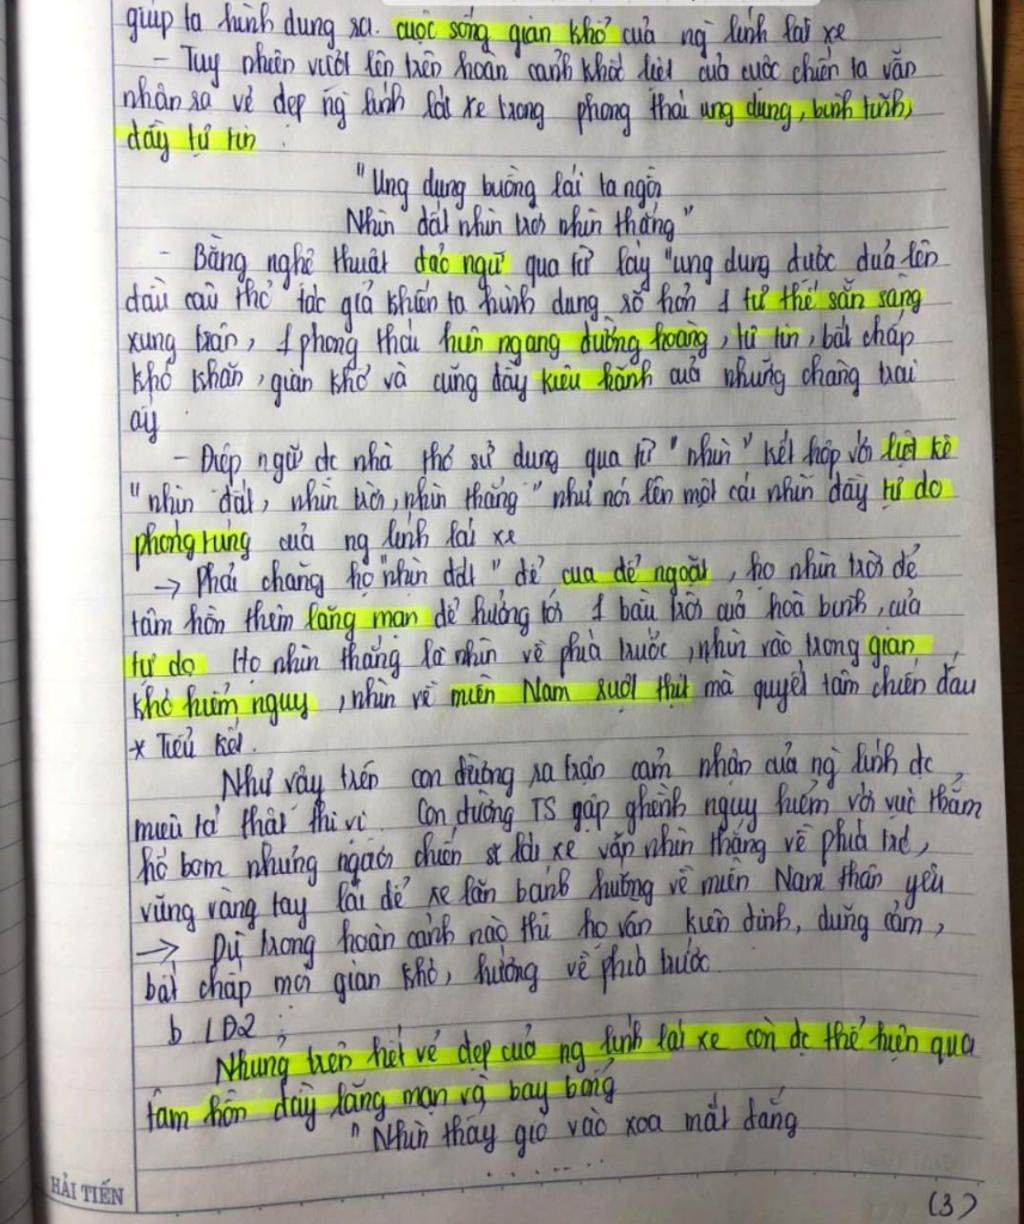 giúp ta hình dung ra cuộc sống gian khổ của ng lính lái xe
- Tuy nhiên vượt lên trên hoàn cảnh khốc liệt của cuộc chiến ta vẫn
nhận ra vẻ đẹp ng lính lái xe trong phong thái ung dung, bình tĩnh,
đầy tự tin.
"Ung dung buồng lái ta ngồi
Nhìn đất nhìn trời nhìn thẳng"
- Bằng nghệ thuật đảo ngữ qua từ láy "ung dung được đưa lên
đầu câu thơ tác giả khiến ta hình dung rõ hơn 1 tư thế sẵn sàng
xung trận, 1 phong thái hiên ngang đường hoàng, tự tin, bất chấp
khó khăn, gian khổ và cũng đầy kiêu hãnh của những chàng trai
ấy
- Điệp ngữ đc nhà thơ sử dụng qua từ "nhìn" kết hợp với liệt kê
"nhìn đất, nhìn trời, nhìn thẳng" như nói lên một cái nhìn đầy tự do
phóng túng của ng lính lái xe
→ Phải chăng họ "nhìn đất" để cua để ngoặt, họ nhìn trời để
tâm hồn thêm lãng mạn để hướng tới 1 bầu trời của hoà bình, của
tự do Họ nhìn thẳng là nhìn về phía trước, nhìn vào trong gian
khó hiểm nguy, nhìn về miền Nam ruột thịt mà quyết tâm chiến đấu
* Tiểu kết.
Như vậy trên con đường ra trận cảm nhận của ng lính đc
miêu tả thật thi vị. Con đường TS gập ghềnh nguy hiểm với vực thẳm
hố bom nhưng người chiến sĩ lái xe vẫn nhìn thẳng về phía trc,
vững vàng tay lái để xe lăn bánh hướng về miền Nam thân yêu
→ Dù trong hoàn cảnh nào thì họ vẫn kiên định, dũng cảm,
bất chấp mọi gian khổ, hướng về phía trước.
b LĐ2:
Nhưng trên hết vẻ đẹp của ng lính lái xe còn đc thể hiện qua
tâm hồn đầy lãng mạn và bay bổng
"Nhìn thấy gió vào xoa mắt đắng
........
HẢI TIẾN
(3)